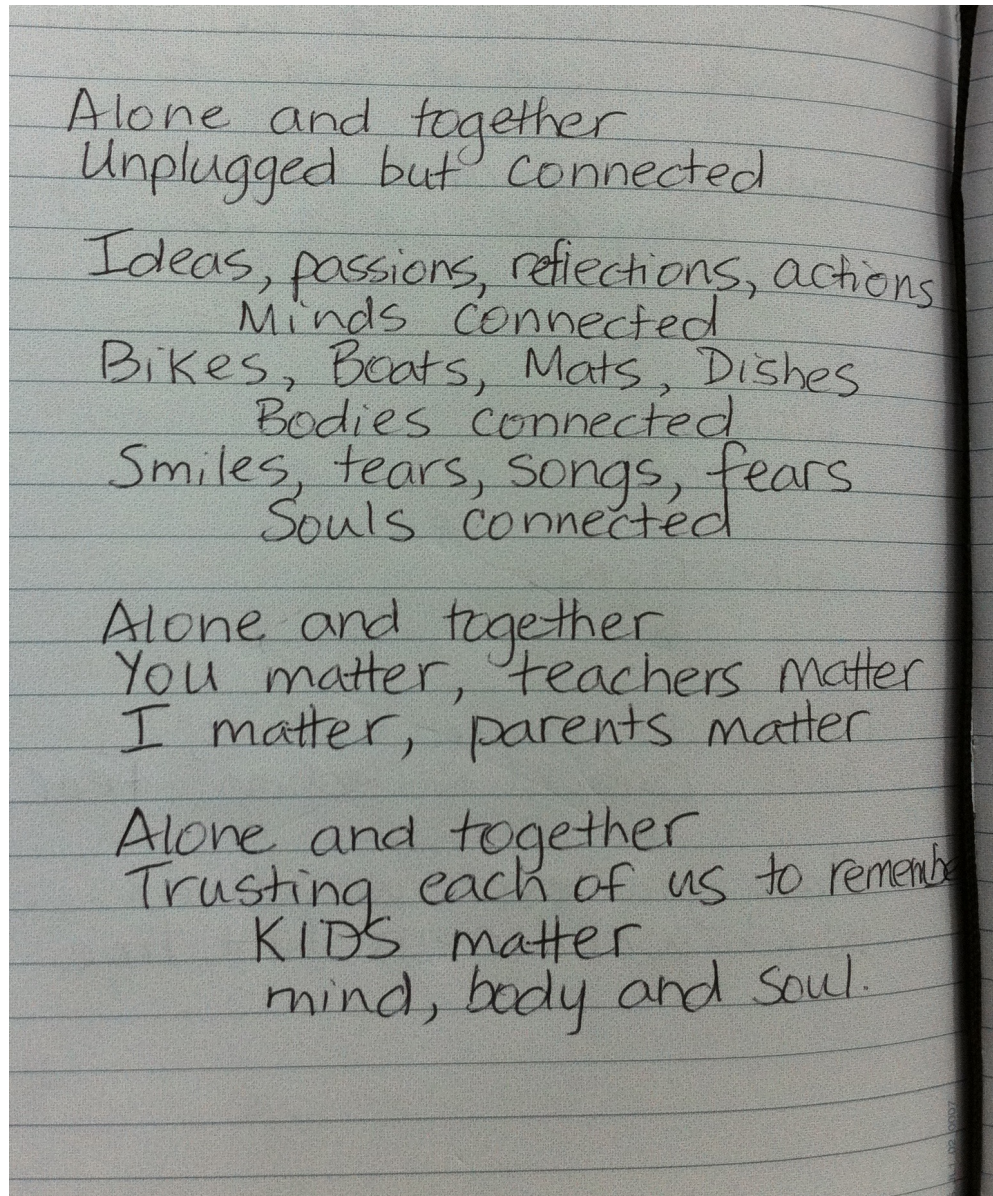 Alone and together
Unplugged but connected
Ideas, passions, reflections, actions
Minds connected
Bikes, Boats, Mats, Dishes
Bodies connected
Smiles, tears, songs, fears
Souls connected
Alone and together
You matter, teachers matter
I matter, parents matter
Alone and together
Trusting each of us to remembe
KIDS matter
mind, body and soul.